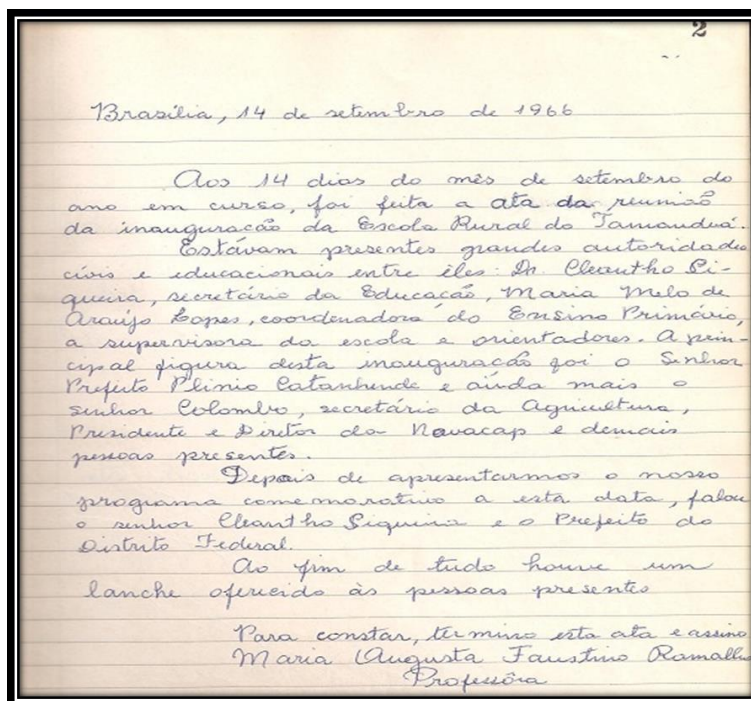 2
Brasília, 14 de setembro de 1966
Aos 14 dias do mês de setembro do
ano em curso, foi feita a ata da reunião
da inauguração da Escola Rural do Tamanduá.
Estávam presentes grandes autoridades
civís e educacionais entre êles: Dr. Cleantho Si-
queira, secretário da Educação, Maria Melo de
Araújo Lopes, coordenadora do Ensino Primário,
a supervisora da escola e orientadores. A prin-
cipal figura desta inauguração foi o Senhor
Prefeito Plínio Catanhende e ainda mais o
senhor Colombo, secretário da Agricultura,
Presidente e Diretor da Novacap e demais
pessoas presentes.
Depois de apresentarmos o nosso
programa comemorativo a esta data, falou
o senhor Cleantho Siqueira e o Prefeito do
Distrito Federal.
Ao fim de tudo houve um
lanche oferecido às pessoas presentes
Para constar, termino esta ata e assino
Maria Augusta Faustino Ramalho
Professôra